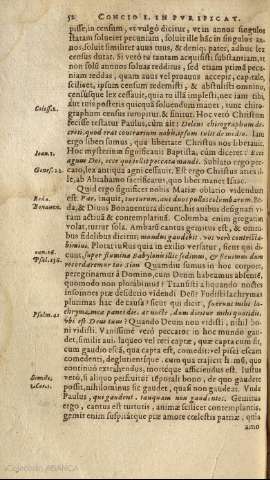 52 CONCIO I. IN PURIFICAT.
pisse, in censum, ut vulgo dicitur, ut in annos singulos
statam solueret pecuniam, soluit ille hâc in singulos an-
nos, soluit similiter auus tuus, & deniq; pater, adhuc lex
census durat. Si vero tu tantam acquisisti substantiam, ut
non solũ annuos soluas reditus, sed etiam primã pecu-
niam reddas, quam auus vel proauus accepit, capitale,
scilicet, ipsum censum redimisti, & abstulisti omnino
censusque lex cessauit, quia tu illã implesti, nec iam tibi,
aut tuis posteris quicquã soluendum manet, tunc chiro-
graphum census rumpitur & finitur. Hoc verò Christum
Coloss. 2. fecisse testatur Paulus, cùm ait: Delens chirographum de-
creti, quod erat contrarium nobis, ipsum tulit de medio. Iam
ergo liberi sumus, qua libertate Christus nos liberauit.
Hoc mysterium significauit Baptista, cùm diceret: Ecce
Ioan. 1. agnus Dei, ecce qui tollit peccata mundi. Sublato ergo pec-
cato, lex antiqua agni cessauit. Et ergo Christus aries il-
Genes. 22. le, ab Abrahamo sacrificatus, quo liber manet Isaac.
Quid ergo significet nobis Mariæ oblatio videndum
est. Par, inquit, turturum, aut duos pullos columbarum. Be-
Beda. da, & Diuus Bonauentura dicunt, his auibus designari vi-
Bonauent. tam actiuã & contemplatiuã. Columba enim gregatim
volat, turtur sola. Ambarũ cantus gemitus est, & omni-
bus fidelibus dicitur: mundus gaudebit, vos verò contrista-
bimini. Plorat iustus quia in exilio versatur, sicut qui di-
Psal. 136. cunt, super flumina Babylonis illic sedimus, & fleuimus dum
recordaremur tui Sion. Quamdiu sumus in hoc corpore,
peregrinamur à Domino, cum Deum habeamus absentẽ,
quomodo non plorabimus? Transisti aliquando noctes
insomnes præ desiderio videndi Deũ? Fudisti lachrymas
plurimas hac de causa? sicut qui dicit, fuerunt mihi la-
Psalm. 41. chrymæ meæ panes die ac nocte, dum dicitur mihi quotidie,
vbi est Deus tuus? Quando Deum non vidisti, nihil bo-
ni vidisti. Vanissimè verò peccator in hoc mundo gau-
det, similis aui, laqueo vel reti captæ, quæ capta cum sit,
cum gaudio escã, qua capta est, comedit: vel pisci escam
comedenti, deglutientique, cum qua trajicit hamũ, quo
continuò extrahendus, morteque afficiendus est. Iustus
Simile. verò, si aliquo perfruitur tẽporali bono, de quo gaudere
1. Cor. 7. possit, nihilominus sic gaudet, quasi non gaudeat. Vnde
Paulus, qui gaudent, tanquam non gaudentes. Gemitus
ergo, cantus est turturis, animæ scilicet contemplantis,
gemit enim suspiratque præ amore cœlestis patriæ, quia
amo
Colección ABANCA